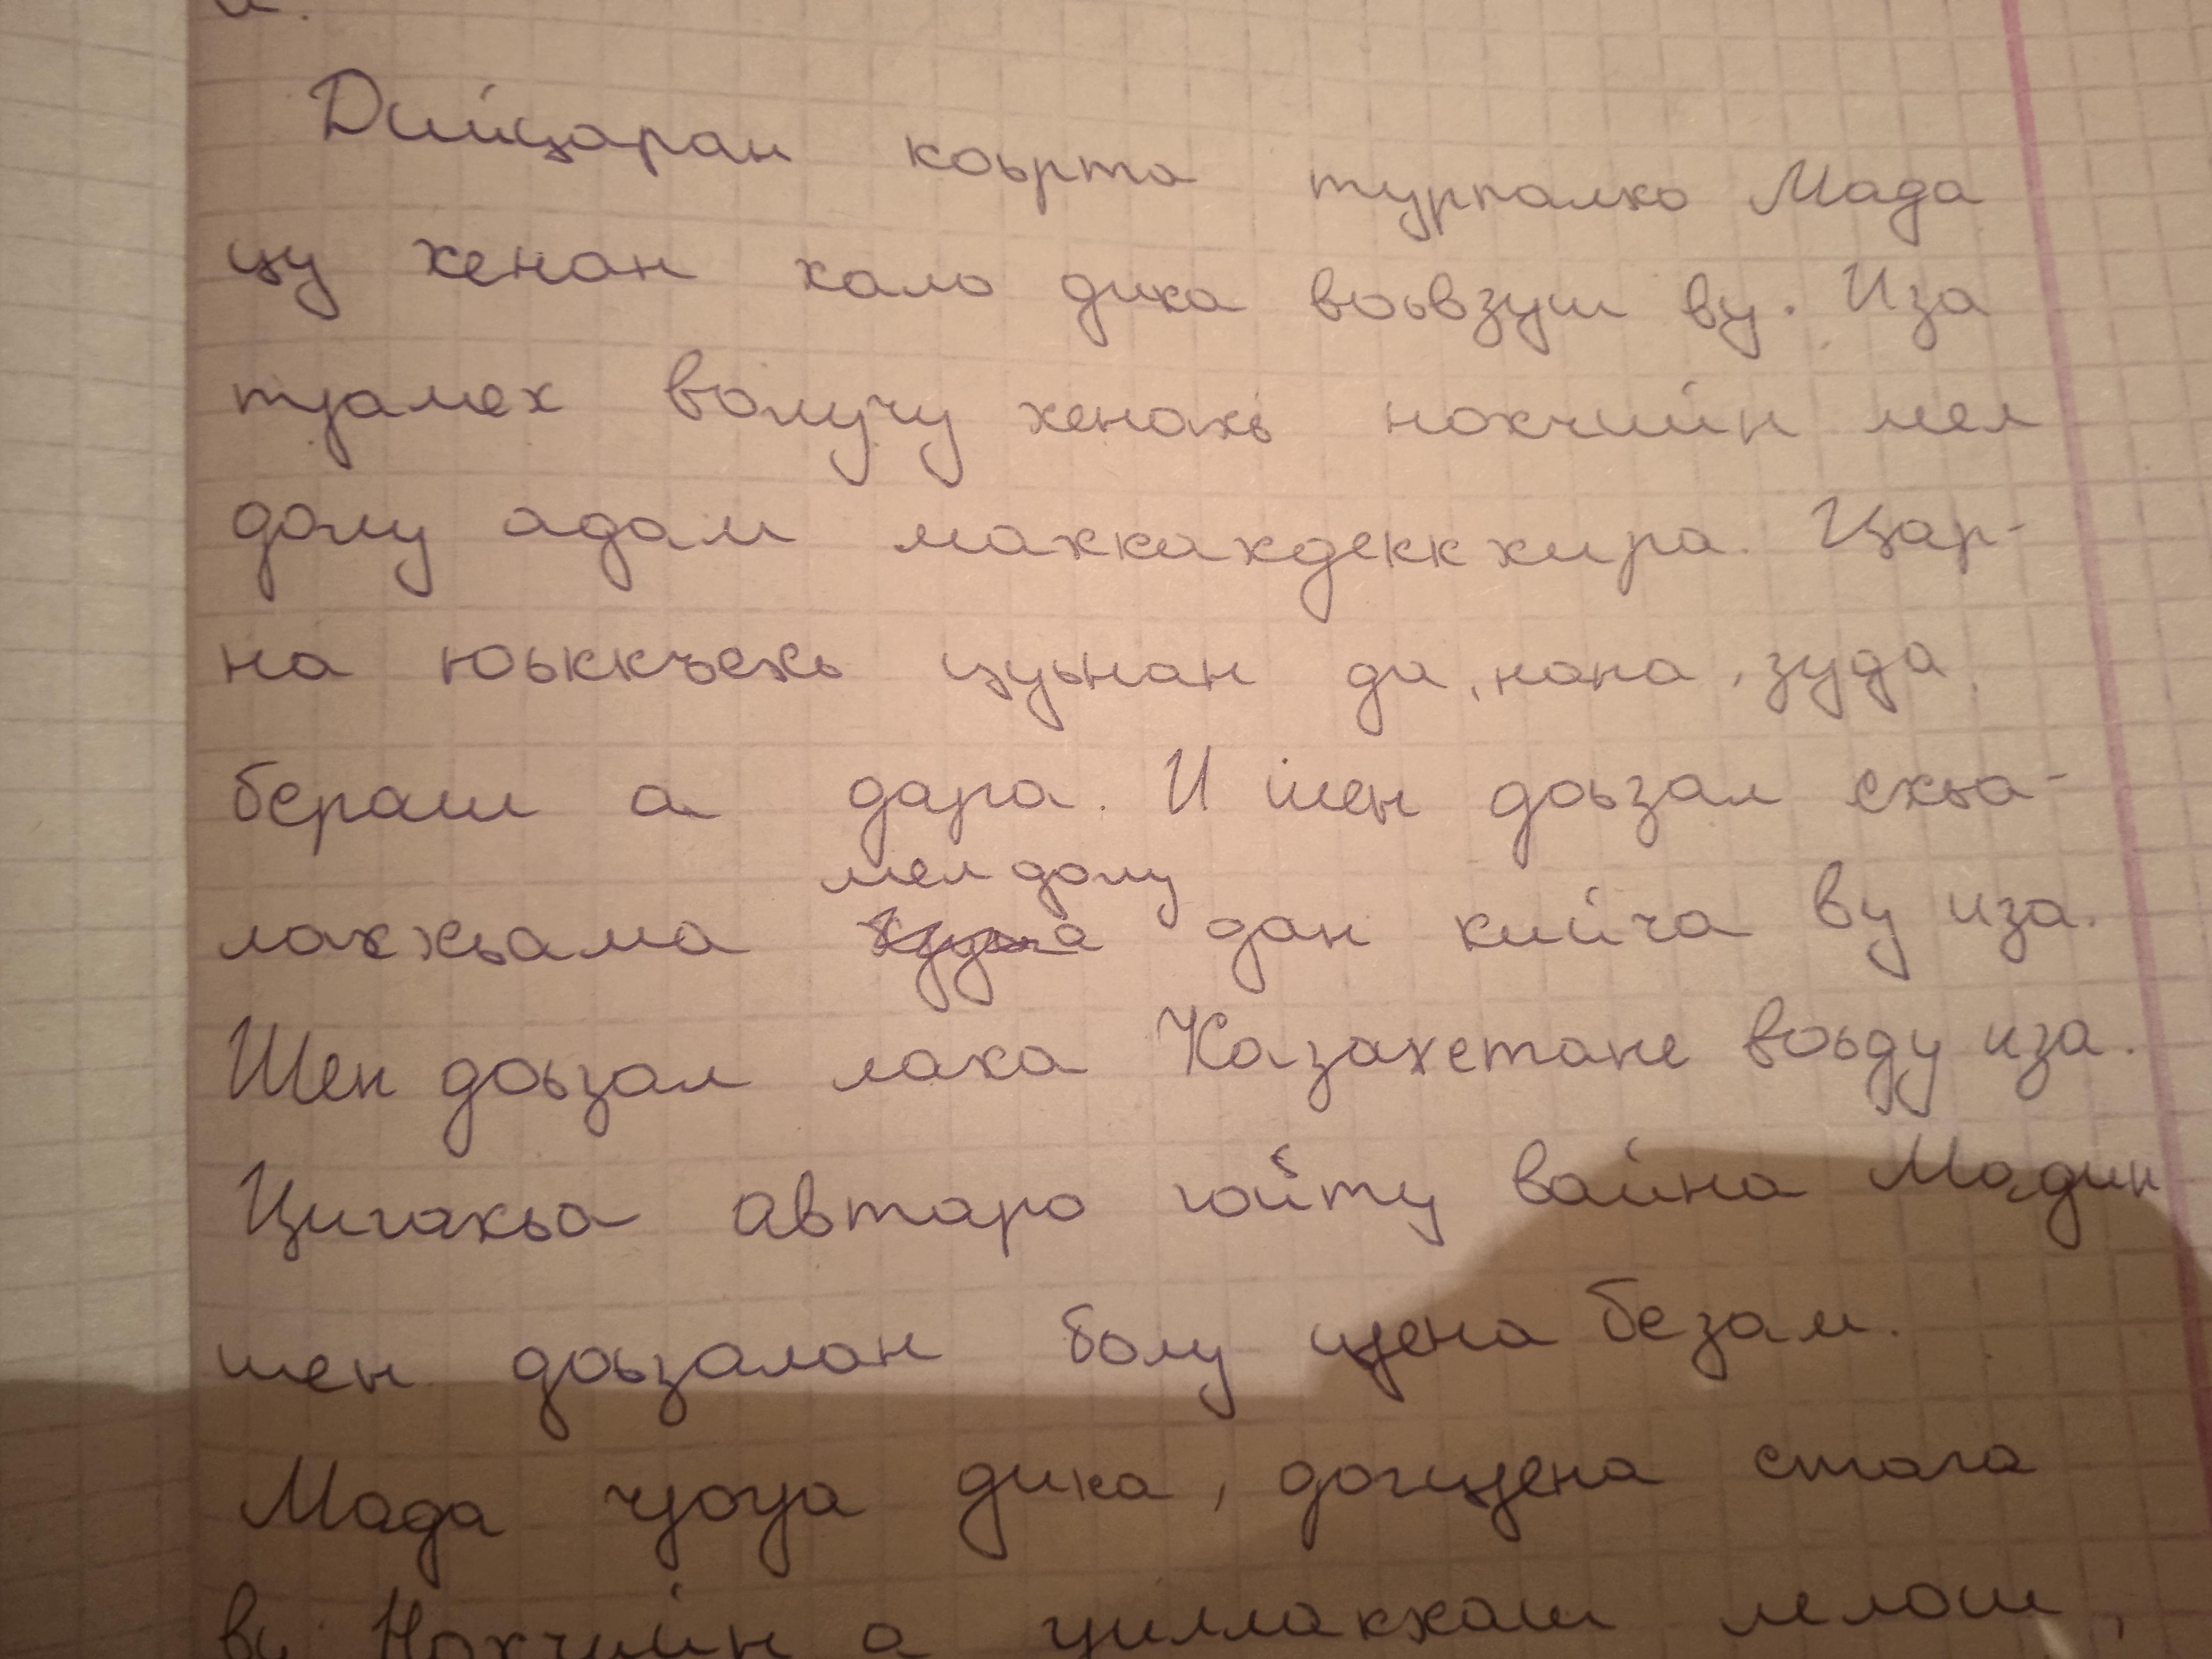 Дийцаран коьрта турпалхо Мада
цу хенан хало дика вовзуш ву. Иза
тӏамех волучу хенахь нохчийн мел
долу адам махкахдеккхира. Цар-
на юьккъехь цуьнан да, нана, зуда,
бераш а дара. И шен доьзал схьа-
лахкхьама мел долу дан кийча ву иза.
Шен доьзал лаха Казахстане воьду иза.
Цигахьа авторо гойту вайна Мадин
шен доьзалан болу цӏена безам.
Мада чӏоӏа дика, догцӏена стага
ву. Нохчийн а гӏиллакхаш лелош,